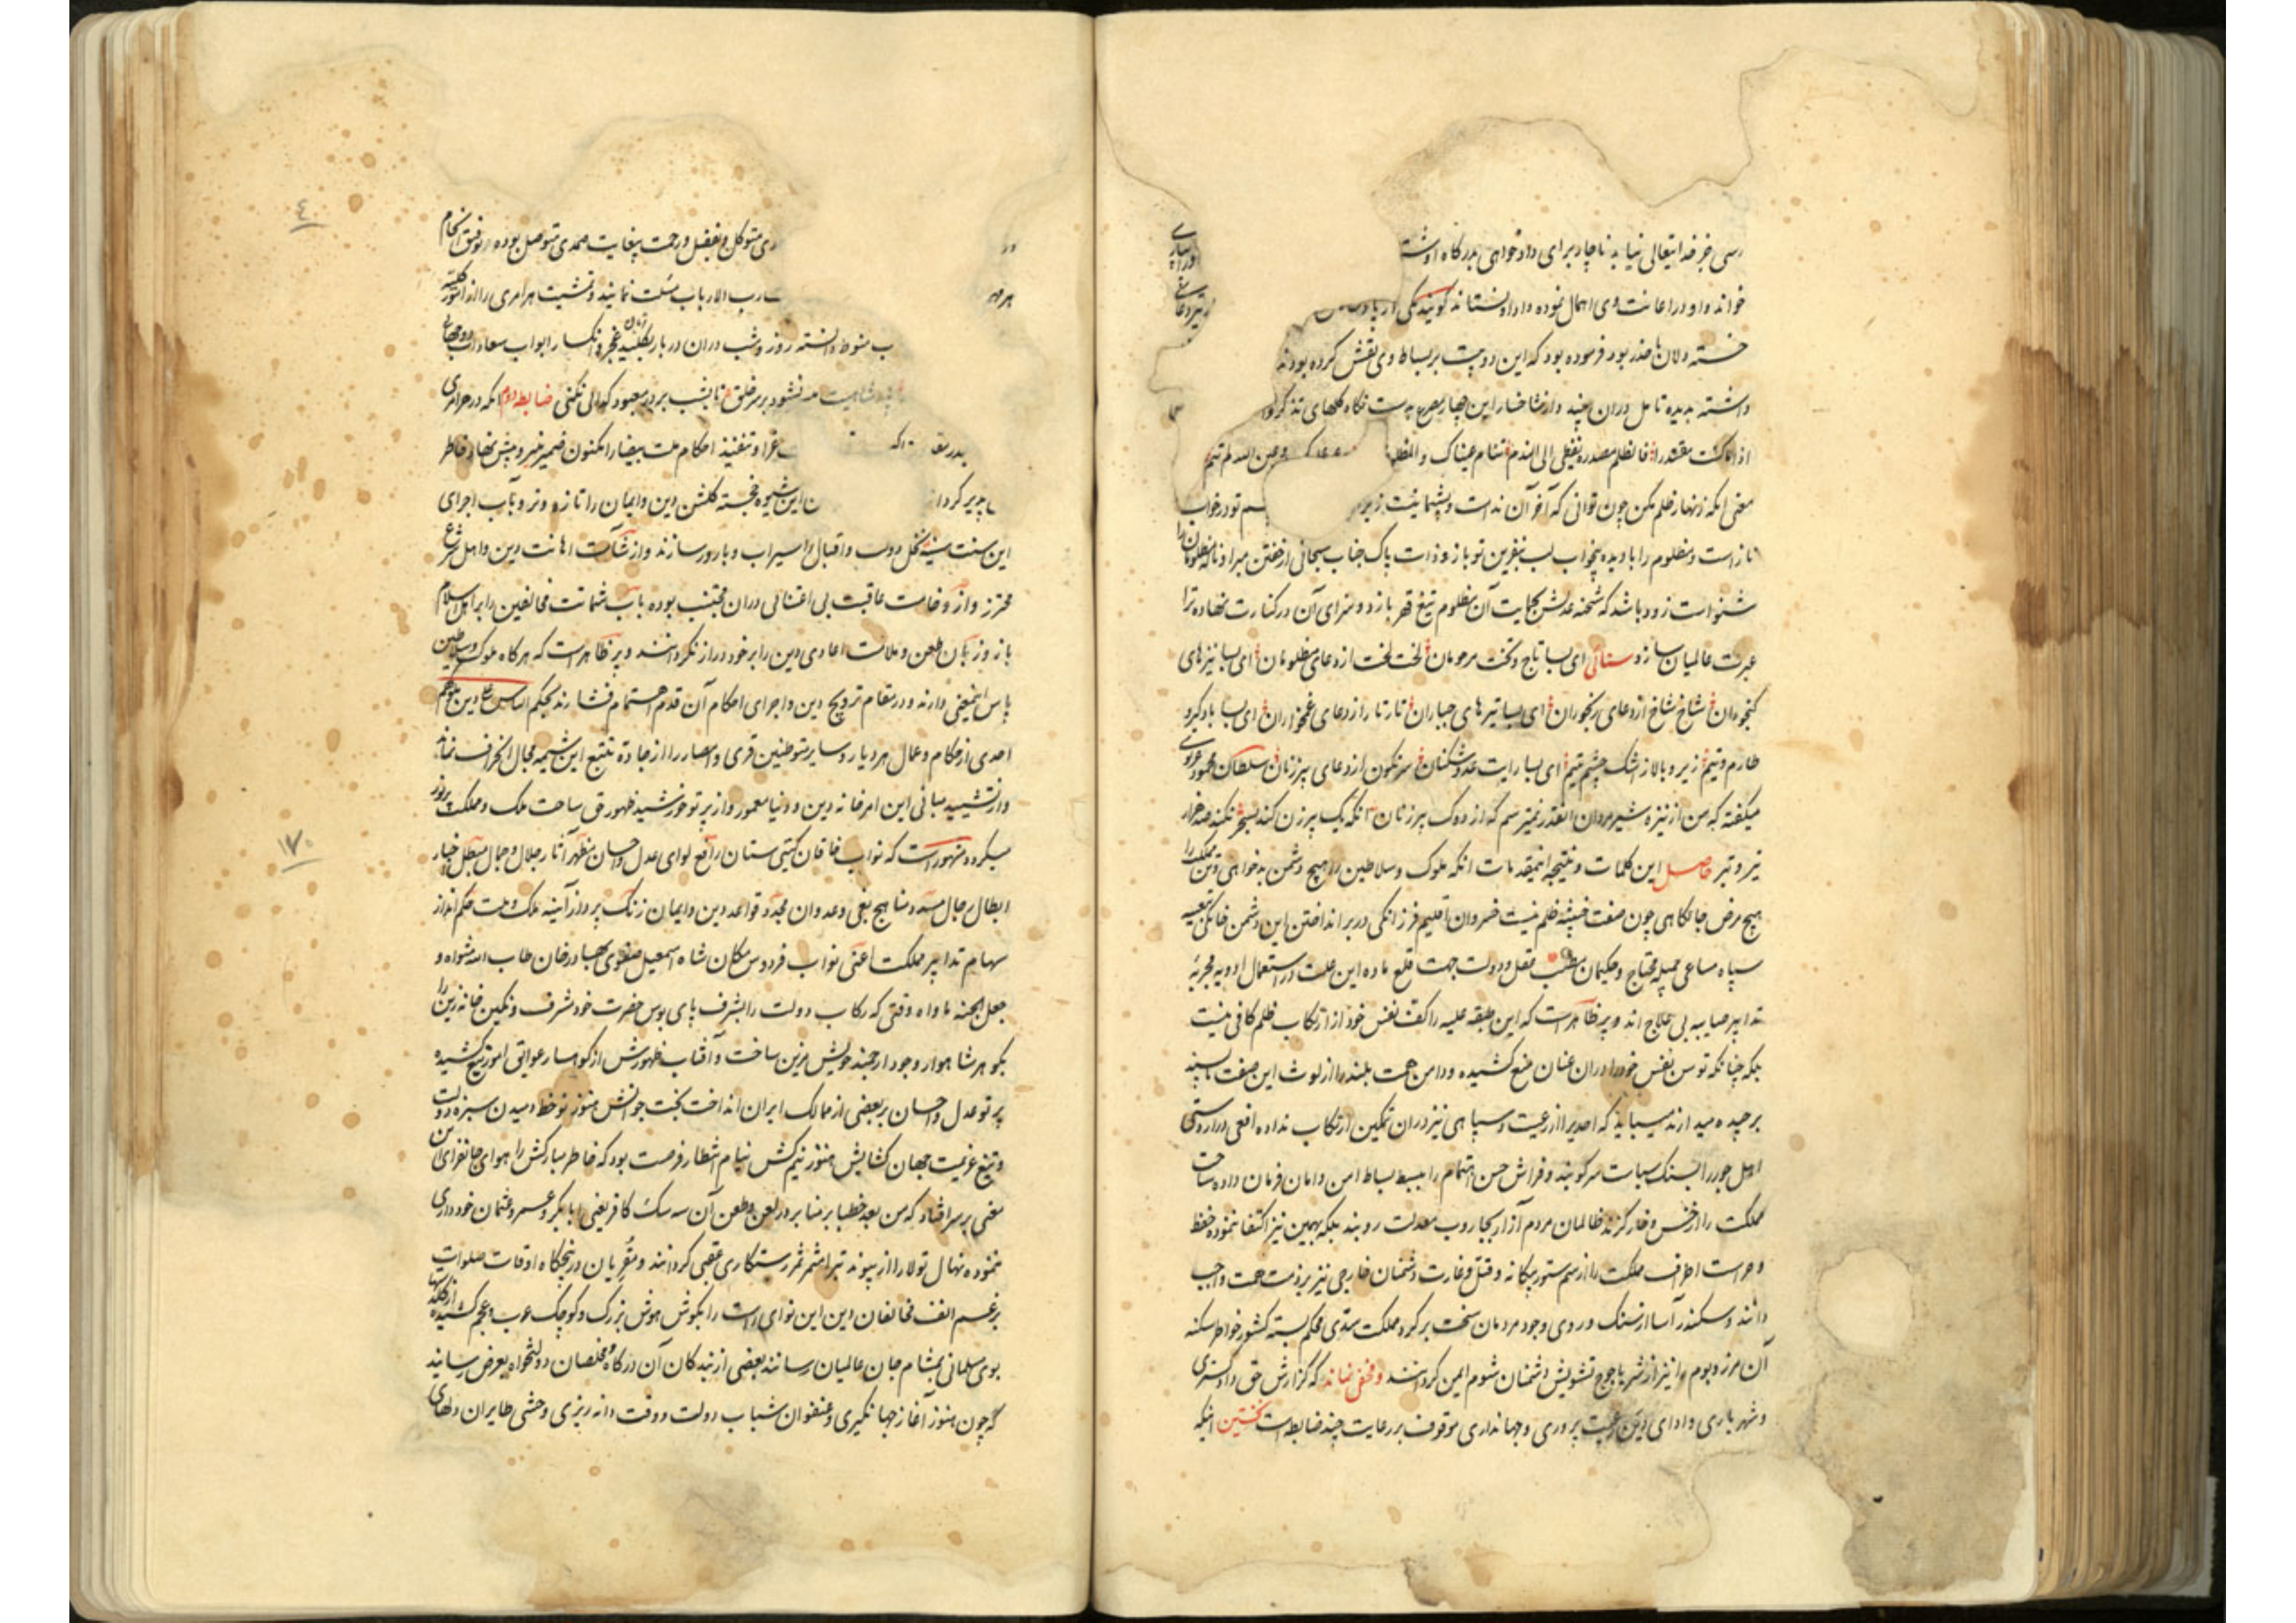 رسی جز خدایتعالی نیابد ناچار برای دادخواهی بدرگاه او شتا
خواند و او در اعانت وی اهمال نموده داد او نستاند گویند یکی از پادس
خسته دلان با حذر بود فرموده بود که این دو بیت بر بساط وی نقش کرده بودند
داشته بدیده تامل دران بیند و از شاخسار این چهار مصرع بدست نگاه گلهای تذکر
اذا کنت مقتدرا فالظلم مصدره یفضی الی الندم تنام عیناک والمظلوم وعین الله لم تنم
معنی آنکه زنهار ظلم مکن چون توانی که آخر آن ندامت و پشیمانیست زیر چشم تو در خواب
ناز است و مظلوم را با دیده بیخواب لب بنفرین تو باز و ذات پاک جناب سبحانی از خفتن مبرا و ناله مظلومان را
شنواست زود باشد که شحنه عدلش بحمایت آن مظلوم تیغ قهر یازد و سزای آن در کنارت نهاده ترا
عبرت عالمیان سازد سنائی ای بسا تاج و تخت مرحومان لخت لخت از دعای مظلومان ای بسا نیزهای
گنجوران شاخ شاخ از دعای رنجوران ای بسا تیرهای جباران تار تار از دعای غمخواران ای بسا باد گیر و
طارم و تیم زیر و بالا ز اشک چشم یتیم ای بسا رایت عدو شکنان سرنگون از دعای پیرزنان سلطان محمود غزنوی
میگفته که من از نیزه شیرمردان آنقدر نمیترسم که از دوک پیرزنان آنکه یک پیرزن کند بسحر نکند صد هزار
تیر و تبر حاصل این کلمات و نتیجه اینمقدمات آنکه ملوک و سلاطین را هیچ دشمن بدخواهی و تن مملکت را
هیچ مرض جانکاهی چون صفت خبیثه ظلم نیست خسروان اقلیم فرزانگی در بر انداختن این دشمن خانگی بتعبیه
سپاه مساعی جمیله محتاج و حکیمان مطب عقل و دولت جهت قلع ماده این علت در استعمال ادویه مجربه
تدابیر صایبه بی علاج اند و پر ظاهر است که این طبقه علیه را کف نفس خود از ارتکاب ظلم کافی نیست
بلکه چنانکه توسن نفس خود را دران عنان منع کشیده و دامن همت بلند را از لوث این صفت ناپسند
برچیده میدارند میباید که احدیرا از رعیت و سپاهی نیز دران تمکین ارتکاب نداده افعی دراز دستی
اهل جور را بسنگ سیاست سر کوبند و فراش حسن اهتمام را ببسط بساط امن و امان فرمان داده ساحت
مملکت را از خس و خار گزند ظالمان مردم آزار بجاروب معدلت روبند بلکه بهمین نیز اکتفا ننموده حفظ
و حراست اطراف مملکت را از سم ستور بیگانه و قتل و غارت دشمنان خارجی نیز بر ذمت همت واجب
دانند و سکندر آسا از سنگ و روی وجود مردمان سخت بر گرد مملکت سدی محکم بسته کشور خواطر سکنه
آن مرز و بوم را نیز از شر یاجوج تشویش دشمنان شوم ایمن گردانند و مخفی نماند که گزارش حق دادگستری
و شهریاری و ادای دین رعیت پروری و جهانداری موقوف بر رعایت چند ضابطه است نخستین اینکه
در
ری متوکل و بفضل و رحمت بیغایت صمدی متوصل بوده توفیق انجام
هر مهم
رب الارباب مسئلت نمایند و تمشیت هر امری را از امور کلیه
ب منوط دانسته روز و شب دران دربار بکلید زبان عجز و انکسار ابواب سعادات دوجهانی
نشود بر سر خلق تا بشب بر در معبود گدائی نکنی ضابطه دوم آنکه در هر امری
غرا و تنفیذ احکام ملت بیضا را مکنون ضمیر منیر و پیش نهاد خاطر
پذیر گردا
ن این شیوه خجسته گلشن دین و ایمان را تازه و تر و بآب اجرای
این سنت سنیه نخل دولت و اقبال را سیراب و بارور سازند و از شآمت اهانت دین و اهل شرع
محترز و از وخامت عاقبت بی اعتنائی دران مجتنب بوده باب شماتت مخالفین را بر اهل اسلام
باز و زبان طعن و ملامت اعادی دین را بر خود دراز نگردانند و پر ظاهر است که هر گاه ملوک و سلاطین
پاس اینمعنی دارند و در مقام ترویج دین و اجرای احکام آن قدم اهتمام فشارند بحکم الناس علی دین ملوکهم
احدی از حکام و عمال هر دیار و سایر متوطنین قری و امصار را از جاده تتبع این شیمه مجال انحراف نماند
و از تشیید مبانی این امر خانه دین و دنیا معمور و از پرتو خورشید ظهور حق ساحت ملک و مملکت پر نور
میگردد مشهور است که نواب خاقان گیتی ستان رافع لوای عدل و احسان مظهر آثار جلال و جمال مبطل خیار
ابطال رجال مسدد مناهج بغی و عدوان مجدد قواعد دین و ایمان زنگ پرداز آیینه ملک و ملت حکم انداز
سهام تدابیر مملکت اعنی نواب فردوس مکان شاه اسمعیل صفوی بهادر خان طاب الله مثواه و
جعل الجنه ماواه وقتی که رکاب دولت را بشرف پای بوس حضرت خود مشرف و نگین خانه زین را
بگوهر شاهوار وجود ارجمند خویش مزین ساخت و آفتاب ظهورش از کوهسار عوایق امور تیغ کشیده
پرتو عدل و احسان بر بعضی از ممالک ایران انداخت بخت جوانش هنوز نوخط دمیدن سبزه دولت
و تیغ عزیمت جهان گشایش هنوز نیم کش نیام انتظار فرصت بود که خاطر مبارکش را هوای جانفزای این
معنی بر سر افتاد که من بعد خطبا بر منابر در لعن و طعن آن سه سگ کافر یعنی ابابکر و عمر و عثمان خودداری
ننموده نهال تولا را از پیوند تبرا مثمر ثمر رستگاری عقبی گردانند و مقریان در پنجگاه اوقات صلوات
برغم انف مخالفان دین این نوای راست را بگوش هوش بزرگ و کوچک عرب و عجم کشیده
بوی مسلمانی بمشام جان عالمیان رسانند بعضی از بندگان آن درگاه و مخلصان دولتخواه بعرض رسانید
که چون هنوز آغاز جهانگیری و عنفوان شباب دولت و وقت دانه ریزی وحشی طایران دلهای
٤
١٧٠